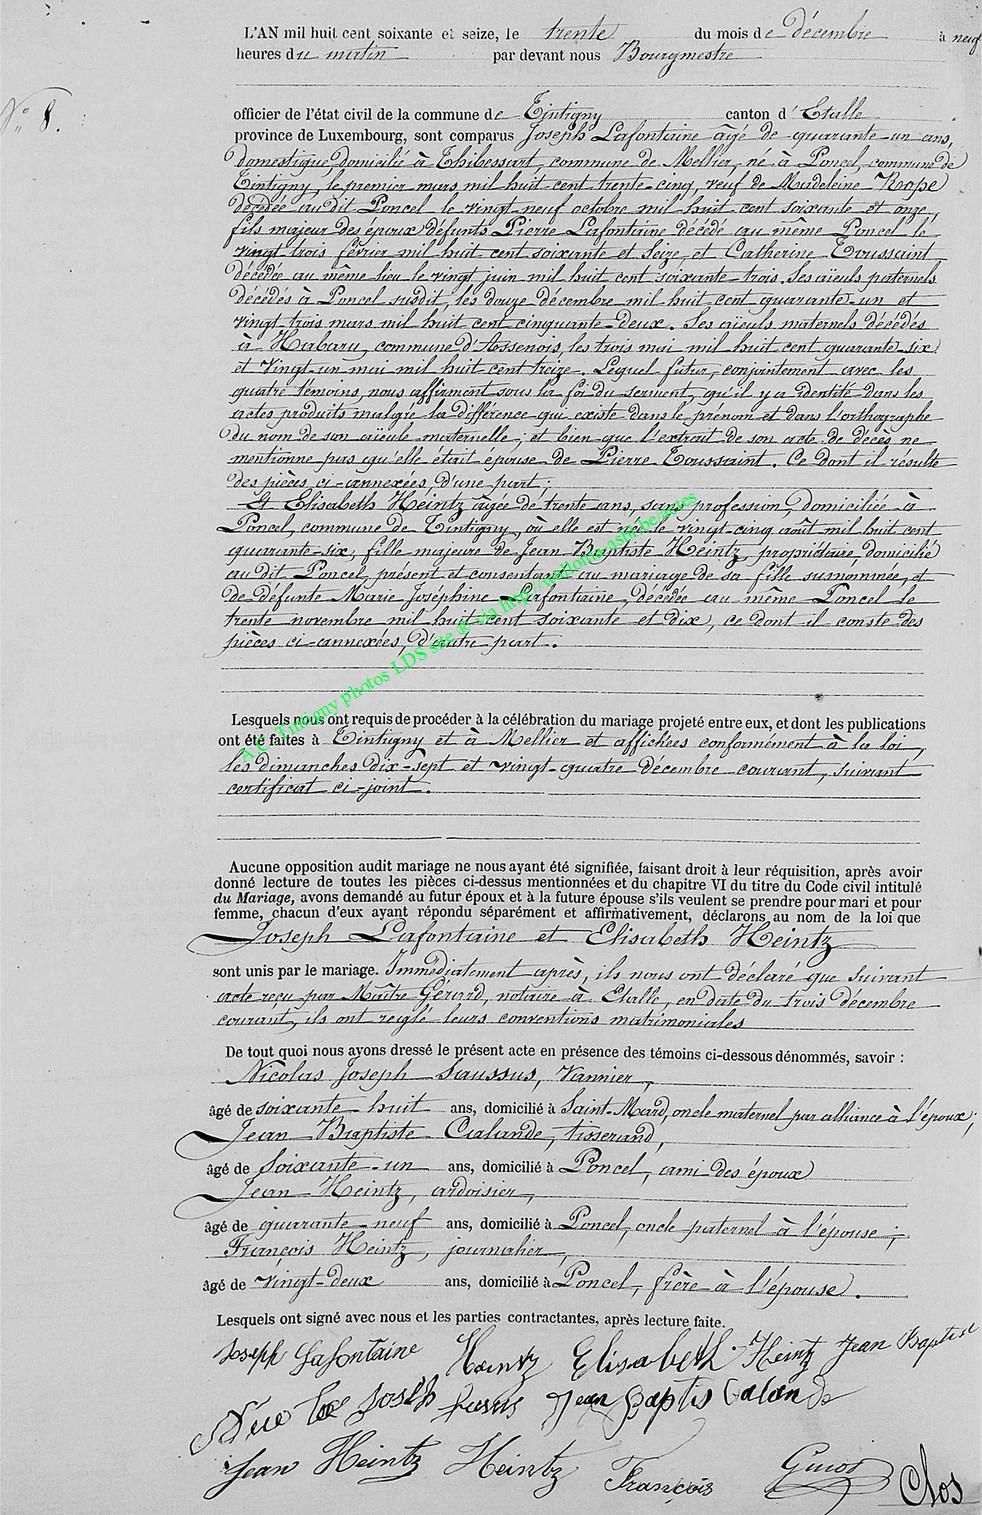 L'AN mil huit cent soixante et seize, le trente du mois de décembre à neuf
heures du matin par devant nous Bourgmestre
N° 8.
officier de l'état civil de la commune de Tintigny canton d'Etalle
province de Luxembourg, sont comparus Joseph Lafontaine âgé de quarante-un ans,
domestique, domicilié à Thibessart, commune de Mellier, né à Poncel, commune de
Tintigny, le premier mars mil huit cent trente-cinq, veuf de Madeleine Rope
décédée au dit Poncel le vingt-neuf octobre mil huit cent soixante et onze,
fils majeur des époux défunts Pierre Lafontaine décédé au même Poncel le
vingt trois février mil huit cent soixante et seize, et Catherine Toussaint,
décédée au même lieu le vingt juin mil huit cent soixante-trois. Ses aïeuls paternels
décédés à Poncel susdit, les douze décembre mil huit cent quarante-un et
vingt-trois mars mil huit cent cinquante-deux. Ses aïeuls maternels décédés
à Habaru, commune d'Assenois, les trois mai mil huit cent quarante-six
et vingt-un mai mil huit cent treize. Lequel futur, conjointement avec les
quatre témoins, nous affirment sous la foi du serment, qu'il y a identité dans les
actes produits malgré la différence qui existe dans le prénom et dans l'orthographe
du nom de son aïeule maternelle; et bien que l'extrait de son acte de décès ne
mentionne pas qu'elle était épouse de Pierre Toussaint. Ce dont il résulte
des pièces ci-annexées, d'une part;
Et Elisabeth Heintz âgée de trente ans, sans profession, domiciliée à
Poncel, commune de Tintigny, où elle est née le vingt-cinq août mil huit cent
quarante-six, fille majeure de Jean Baptiste Heintz, propriétaire, domicilié
au dit Poncel, présent et consentant au mariage de sa fille susnommée, et
de défunte Marie Joséphine Lafontaine, décédée au même Poncel le
trente novembre mil huit cent soixante et dix, ce dont il conste des
pièces ci-annexées, d'autre part.
A.C. Tintigny photos LDS site & via http://wallonia-asbl.be/actes
Lesquels nous ont requis de procéder à la célébration du mariage projeté entre eux, et dont les publications
ont été faites à Tintigny et à Mellier et affichées conformément à la loi,
les dimanches dix-sept et vingt-quatre décembre courant, suivant
certificat ci-joint.
Aucune opposition audit mariage ne nous ayant été signifiée, faisant droit à leur réquisition, après avoir
donné lecture de toutes les pièces ci-dessus mentionnées et du chapitre VI du titre du Code civil intitulé
du Mariage, avons demandé au futur époux et à la future épouse s'ils veulent se prendre pour mari et pour
femme, chacun d'eux ayant répondu séparément et affirmativement, déclarons au nom de la loi que
Joseph Lafontaine et Elisabeth Heintz
sont unis par le mariage. Immédiatement après, ils nous ont déclaré que suivant
acte reçu par Maître Gérard, notaire à Etalle, en date du trois décembre
courant, ils ont reiglé leurs conventions matrimoniales
De tout quoi nous ayons dressé le présent acte en présence des témoins ci-dessous dénommés, savoir :
Nicolas Joseph Saussus, vannier,
âgé de soixante-huit ans, domicilié à Saint-Mard, oncle maternel par alliance à l'époux;
Jean Baptiste Calande, tisserand,
âgé de soixante-un ans, domicilié à Poncel, ami des époux
Jean Heintz, ardoisier,
âgé de quarante-neuf ans, domicilié à Poncel, oncle paternel à l'épouse;
François Heintz, journalier,
âgé de vingt-deux ans, domicilié à Poncel, frère à l'épouse.
Lesquels ont signé avec nous et les parties contractantes, après lecture faite.
Joseph Lafontaine Heintz Elisabeth Heintz Jean Baptist
Joseph Jean Baptis Calande
Jean Heintz Heintz François